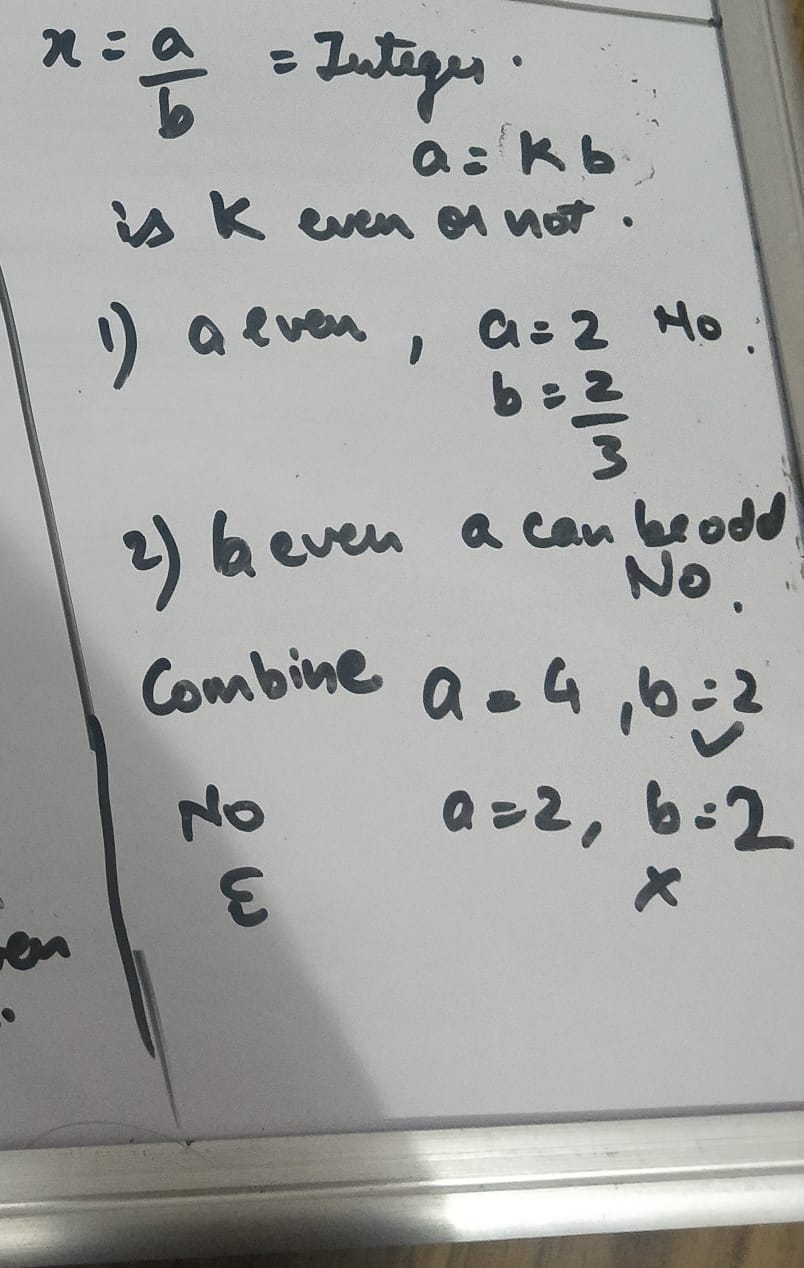 x = a/b = Integer.
a = K b
is K even or not.
1) a even, a = 2 No.
b = 2/3
2) b even a can be odd
No.
Combine a = 4, b = 2 ✓
No a = 2, b = 2
E ×
en
.